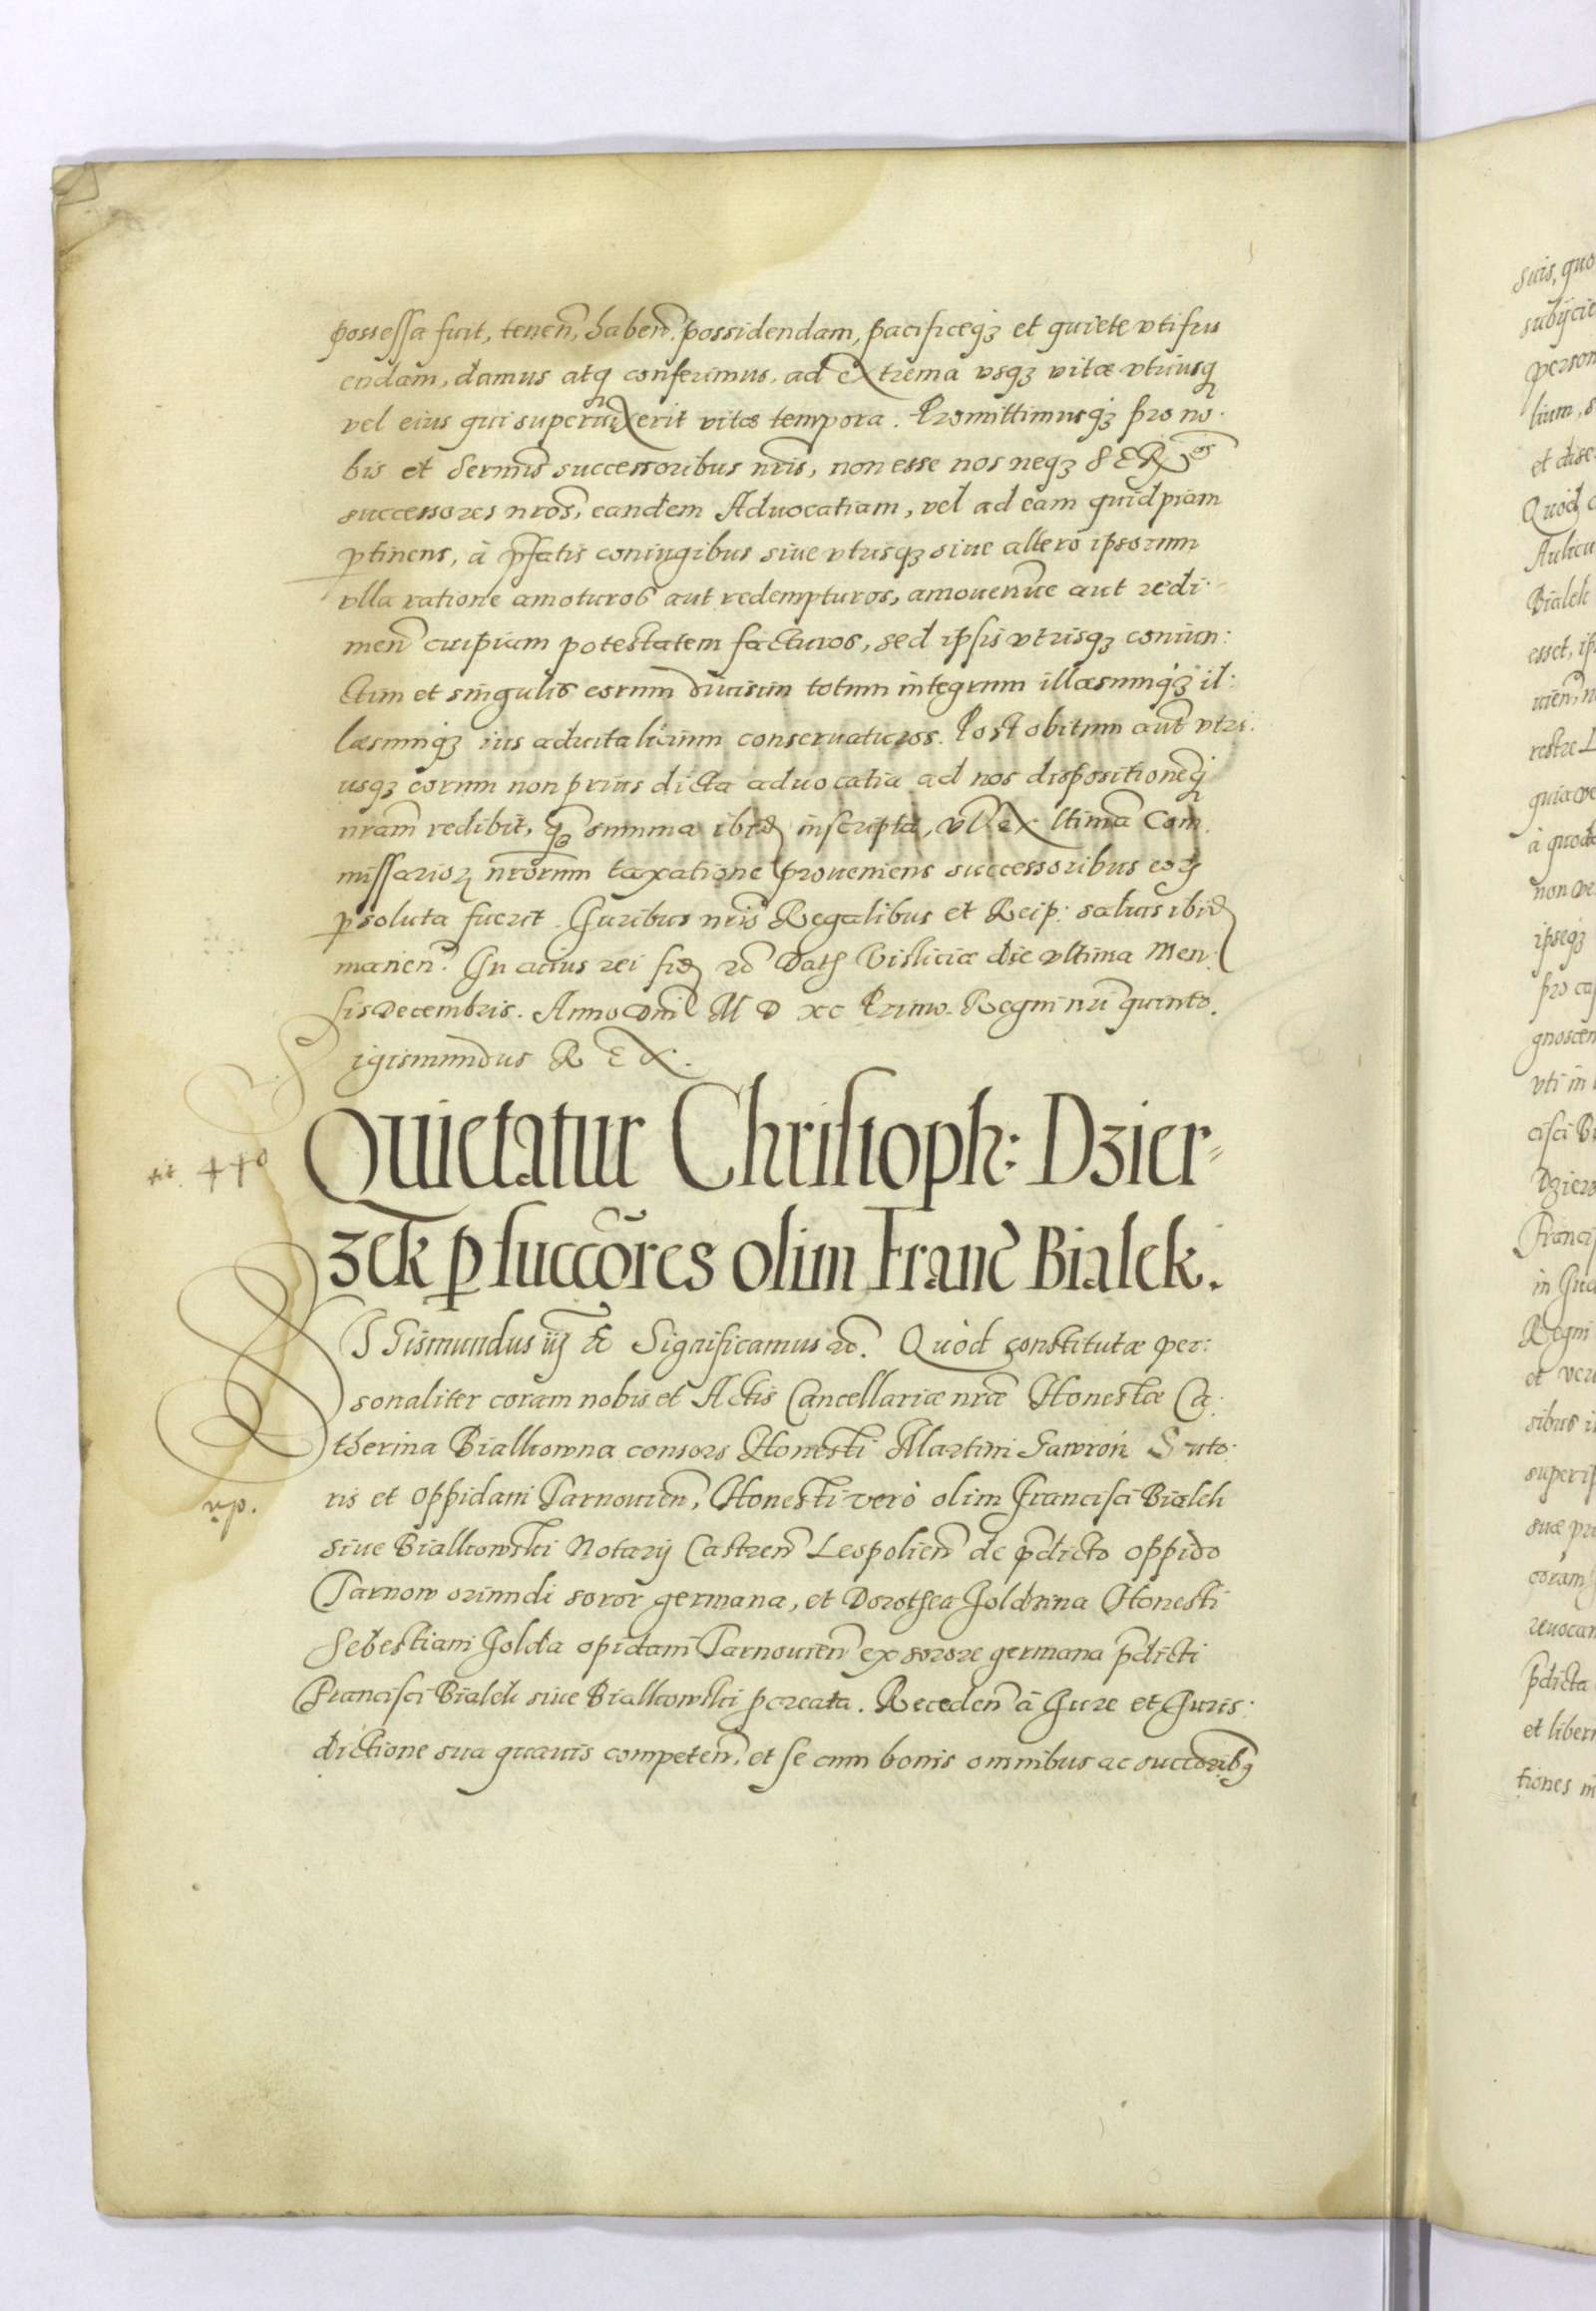 possessa fuit, tenen̄, haben̄. possidendam, pacificeq3 et quiete vtifru
endam, damus atq̨ conferimus, ad extrema vsq3 vitæ vtriusq̨
vel eius qui superuixerit vitæ tempora. Promittimusq3 pro no.
bis et Sermis̄ successoribus nr̄is, non esse nos neq3 SER
successores nr̄os, eandem Aduocatiam, vel ad eam quidpiam
ꝑtinens, à p̄fatis coniugibus siue vtrisq3 siue altero ipsorum
vlla ratione amoturos aut redempturos, amouen̄ue aut redi-
men̄ cuipiam potestatem facturos, sed ipsis vtrisq3 coniun:
ctim et singulis eorum diuisim totum integrum illæsumq3 il:
læsumq3 ius aduitalicium conseruaturos. Post obitum aut̄ vtri.
usq3 eorum non prius dicta aduocatia ad nos dispositionēq̨
nram̄ redibit, summa ibid̄ inscripta, vl̄ ex ltima Com.
missarior̨ nrorum̄ taxatione proueniens successoribus eor̨
ꝑsoluta fuerit. Juribus nr̄is Regalibus et Reip: saluis ibid̄
manen̄. In cuius rei fid̨ Dat̨ Visliciæ die vltima Men:
sis Decembris. Anno Dnī M D XC Primo. Regni nrī quinto.
Sigismundus REX.
Quietatur Christoph: Dzier⸗
zek ꝑ succōres olim Franc̄ Bialek.
SIGismundus iij Significamus Quòd constitutæ per:
sonaliter coram nobis et Actis Cancellariæ nrǣ Honestæ Ca:
therina Bialkowna consors Honesti Martini Gawroń Suto:
ris et oppidani Tarnouien̄, Honesti verò olim Francisci Bialek
siue Bialkowski Notarij Castren̄ Leopolien̄ de p̄dicto oppido
Tarnow oriundi soror germana, et Dorothea Goldnina Honesti
Sebestiani Golda opidani Tarnouien̄ ex sorore germana p̄dicti
Francisci Bialek siue Bialkowski ꝑcreata. Receden̄ à Jure et Juris:
dictione sua quauis competen̄, et se cum bonis omnibus ac succoribq̄